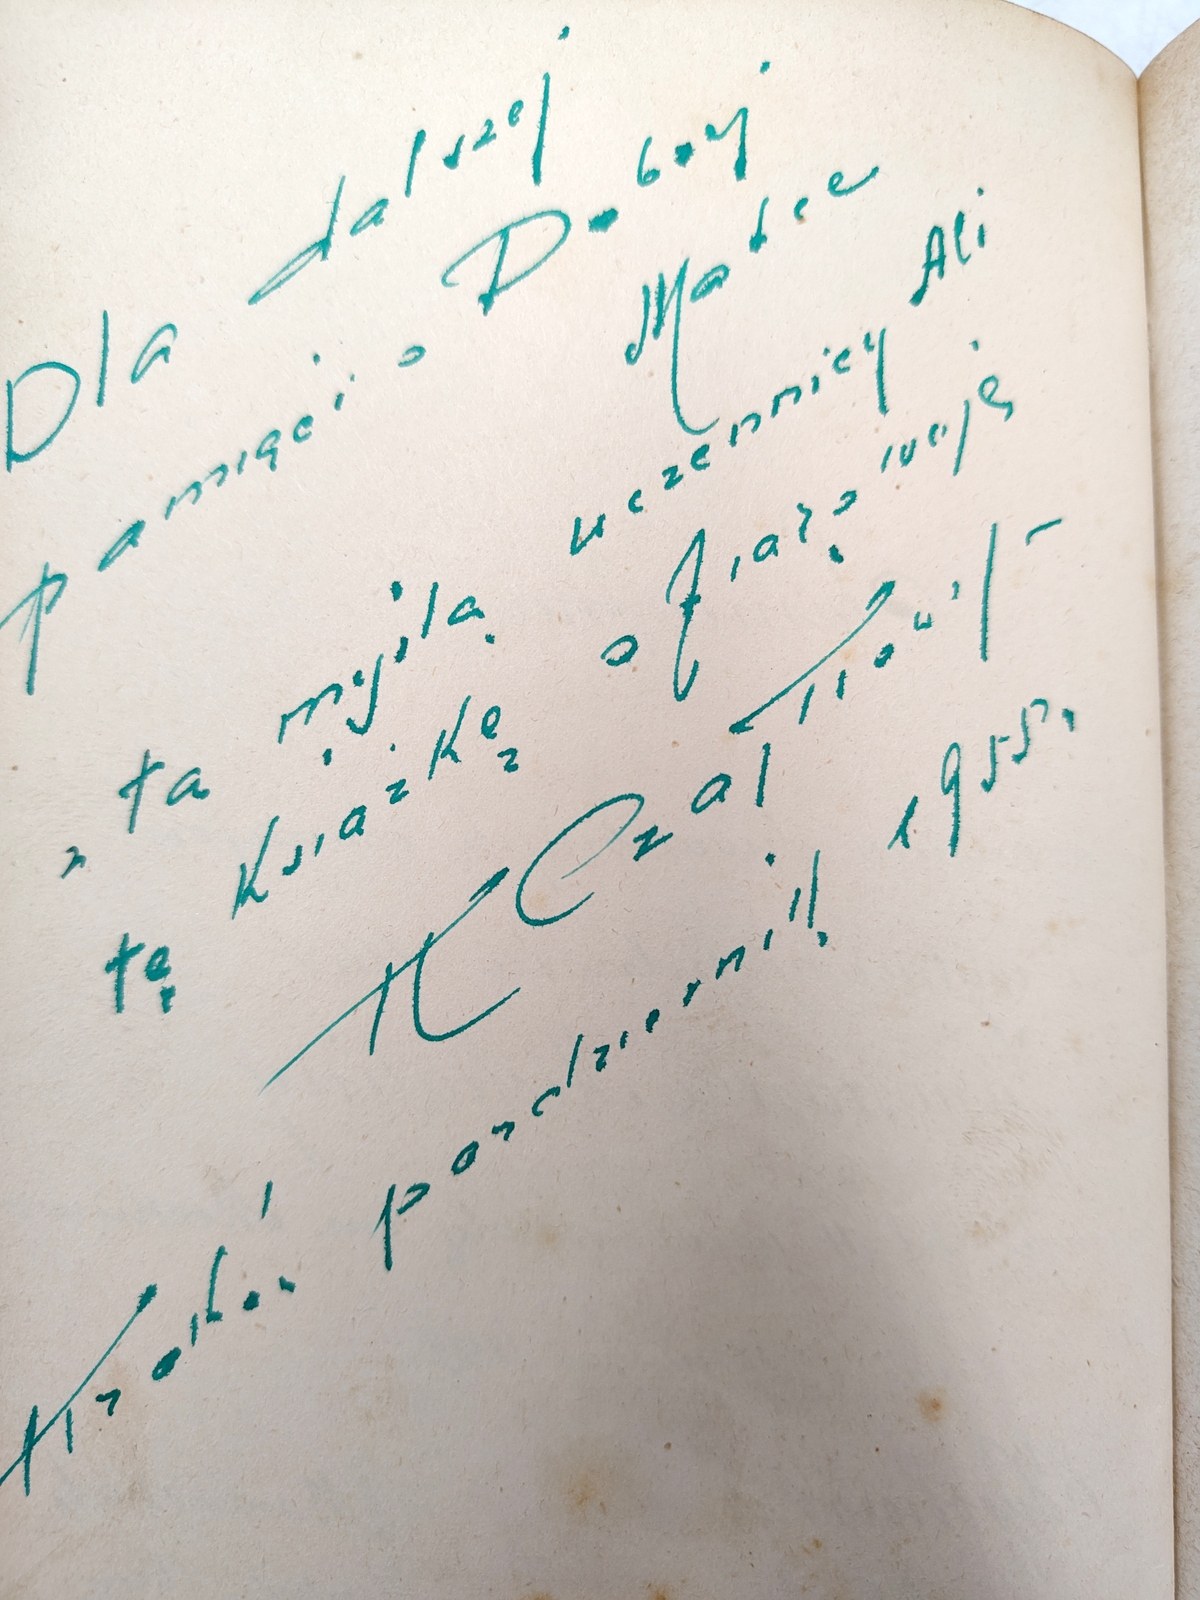 Dla dalszej
pamięci o Dobrej
Matce
uczennicy Ali
z tą myślą ofiarowuję
tę książkę
H Czaltnowsk
Kraków październik 1955.